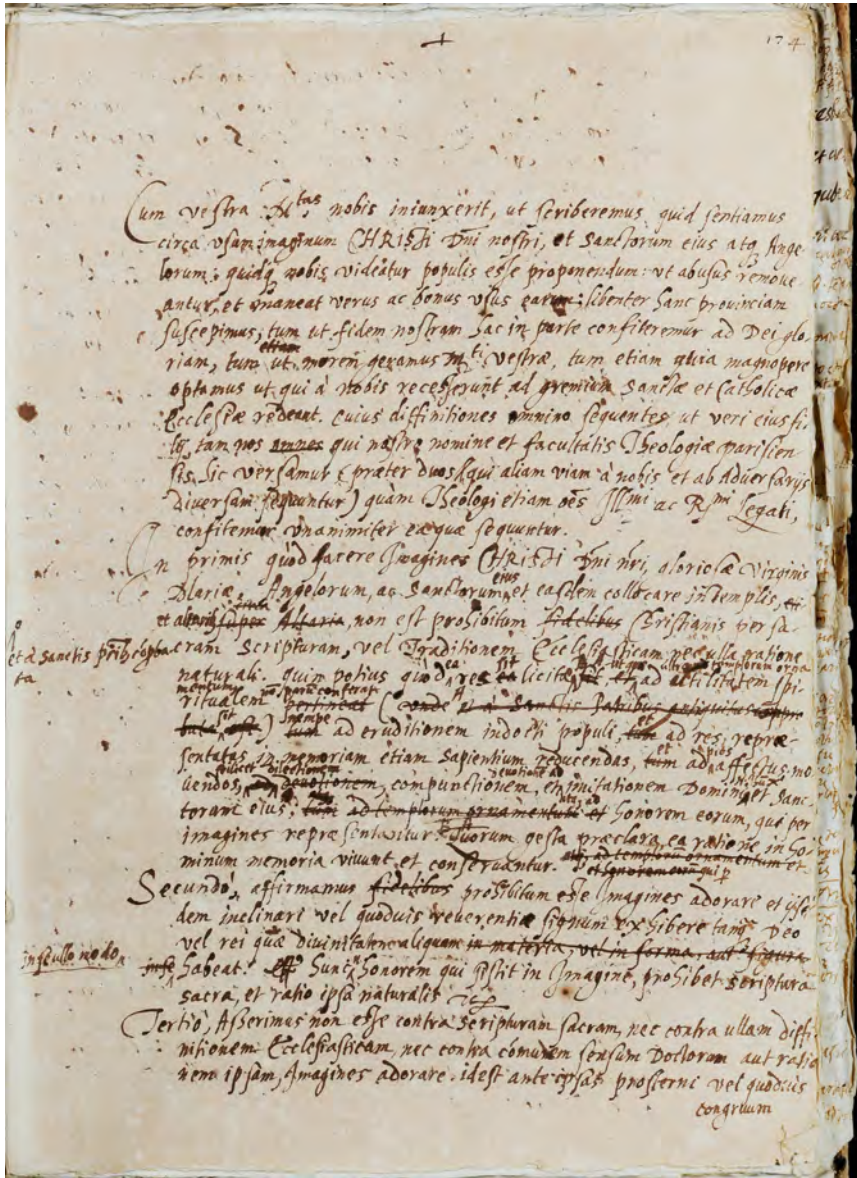 174
Cum vestra M.tas nobis iniunxerit, ut scriberemus quid sentiamus
circa usum imaginum CHRISTI Dni nostri, et Sanctorum eius atq Ange-
lorum: quidq nobis videatur populis esse proponendum: ut abusus remove-
antur, et maneat verus ac bonus usus earum: libenter hanc provinciam
suscepimus, tum ut fidem nostram hac in parte confiteremur ad Dei glo-
riam, tum etiam ut morem geramus M.ti vestræ, tum etiam quia magnopere
optamus ut qui à nobis recesserunt ad gremium Sanctæ et Catholicæ
Ecclesiæ redeant. Cuius diffinitiones omnino sequentes, ut veri eius fi-
lij, tam nos omnes qui nostro nomine et facultatis Theologiæ parisien-
sis, hic versamur (præter duos qui aliam viam à nobis et ab Adversarijs
diversam sequuntur) quàm Theologi etiam oēs Ill.mi ac R.mi Legati,
confitemur unanimiter ea quæ sequuntur.
In primis quòd facere Imagines CHRISTI Dni nri, gloriosæ Virginis
Mariæ, Angelorum, ac Sanctorum eius et easdem collocare in templis,
et super Altaria, non est prohibitum fidelibus Christianis per sa-
cram Scripturam, vel Traditionem Ecclesiasticam nec ulla ratione
et à Sanctis
naturali. quin potius quòd ea res sit licita, et ad utilitatem spi-
ritualem pertineat (unde et à Sanctis Patribus antiquitus appro-
bata est) nempe tum ad eruditionem indocti populi, tum et ad res repræ-
sentatas in memoriam etiam sapientium reducendas, tum et ad pios affectus mo-
vendos, ad devotionem, compunctionem, et imitationem Domini et Sanc-
torum eius; tum ad templorum ornamentum et honorem eorum, qui per
imagines repræsentantur. Quorum gesta præclara ea ratione in ho-
minum memoria vivunt et conservantur. ad templorum ornamentum et
et honorem eorum qui p
Secundò, affirmamus fidelibus prohibitum esse Imagines adorare et ijs-
dem inclinari vel quodvis reverentiæ signum exhibere tanq Deo
vel rei quæ divinitatem aliquam in materia, vel in forma, aut figura
in se ullo modo
in se habeat. Hunc honorem qui sistit in Imagine, prohibet scriptura
sacra, et ratio ipsa naturalis
Tertiò, Asserimus non esse contra Scripturam sacram, nec contra ullam diffi-
nitionem Ecclesiasticam, nec contra cōmunem sensum Doctorum aut ratio-
nem ipsam, Imagines adorare. idest ante ipsas prosterni vel quodvis
congruum